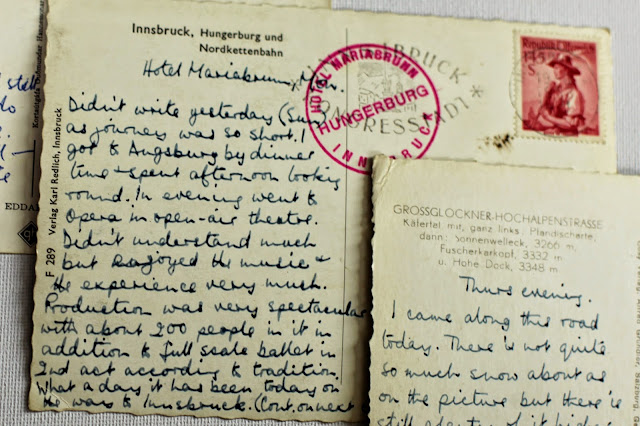 Innsbruck, Hungerburg und
Nordkettenbahn
Hotel Mariabrunn, Mon.
Didn't write yesterday (Sun)
as journey was so short. I
got to Augsburg by dinner
time & spent afternoon looking
round. In evening went to
Opera in open-air theatre.
Didn't understand much
but enjoyed the music &
the experience very much.
Production was very spectacular
with about 200 people in it in
addition to full scale ballet in
2nd act according to tradition.
What a day it has been today on
the way to Innsbruck. (Cont. on next
F 289 Verlag Karl Redlich, Innsbruck
HOTEL MARIABRUNN
HUNGERBURG
INNSBRUCK
BRUCK
KONGRESSTADT
Republik Österreich
1.45
S
GROSSGLOCKNER-HOCHALPENSTRASSE
Käfertal mit, ganz links, Pfandlscharte,
dann: Sonnenwelleck, 3266 m,
Fuscherkarkopf, 3332 m
u. Hohe Dock, 3348 m
Thurs evening.
I came along this road
today. There is not quite
so much snow about as
on the picture but there is
still plenty of it
EDDA
still
do